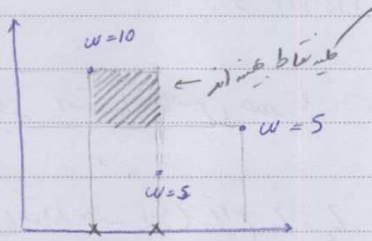 w=10
کلیه نقاط بهینه اند ←
w = 5
w=5